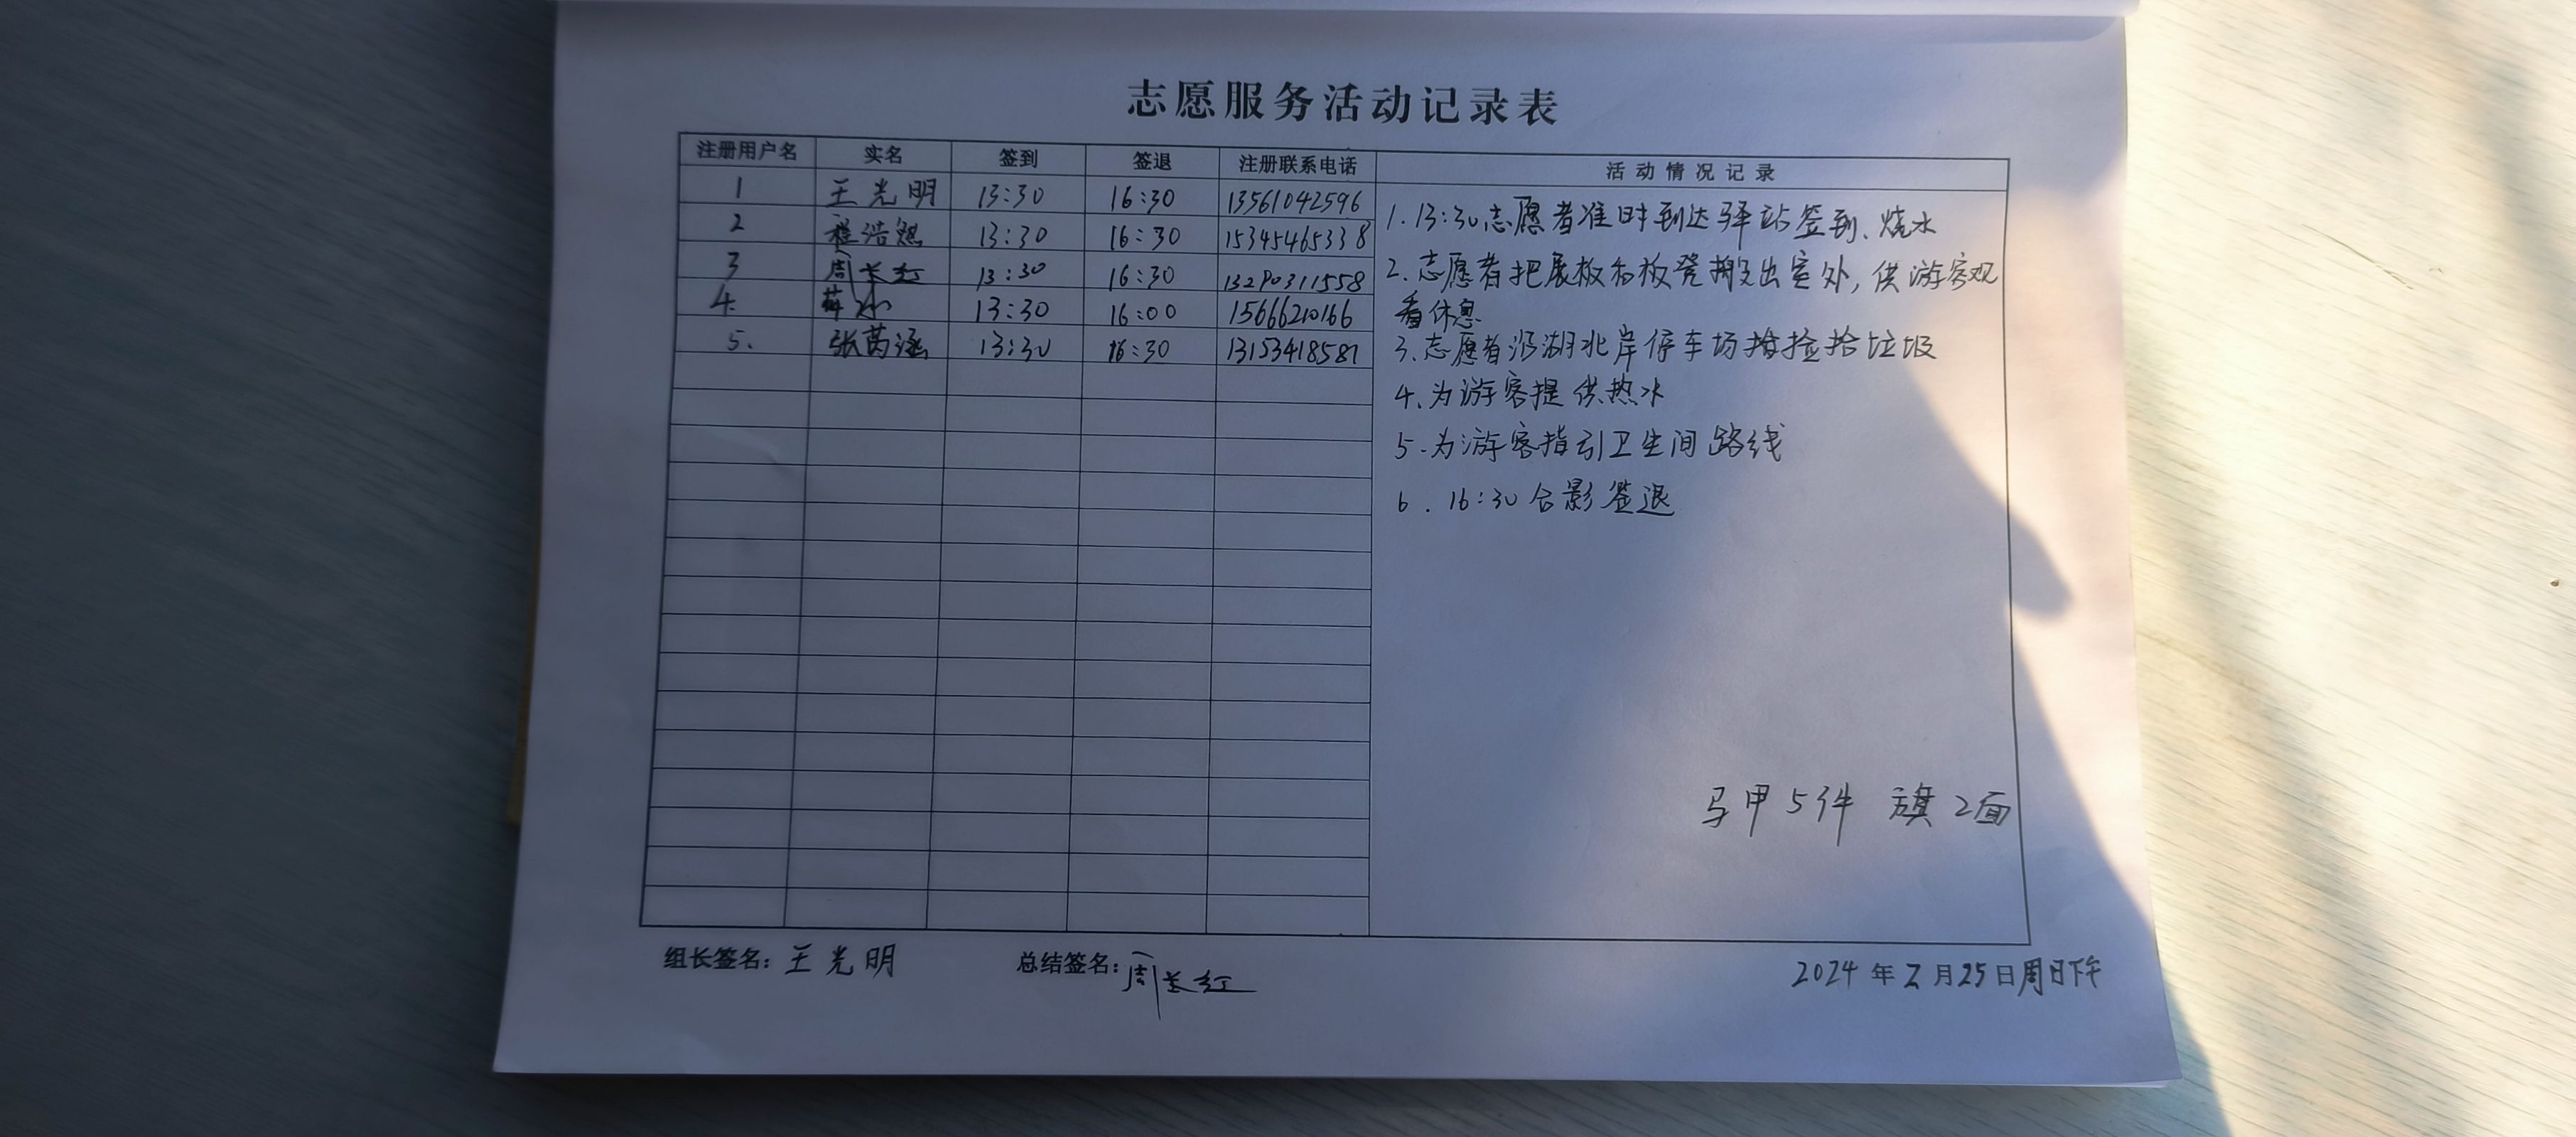 志愿服务活动记录表
注册用户名 实名 签到 签退 注册联系电话 活动情况记录
1 王光明 13:30 16:30 13561042596
2 程浩然 13:30 16:30 15345465338
3 周长红 13:30 16:30 13290311558
4. 13:30 16:00 15666210166
5. 张茜涵 13:30 16:30 13153418581
1.13:30志愿者准时到达驿站签到、烧水
2.志愿者把展板和板凳搬出室外,供游客观
看休息
3.志愿者沿湖北岸停车场捡拾垃圾
4.为游客提供热水
5.为游客指引卫生间路线
6.16:30合影签退
马甲5件 旗2面
组长签名:王光明 总结签名:周长红 2024年2月25日周日下午